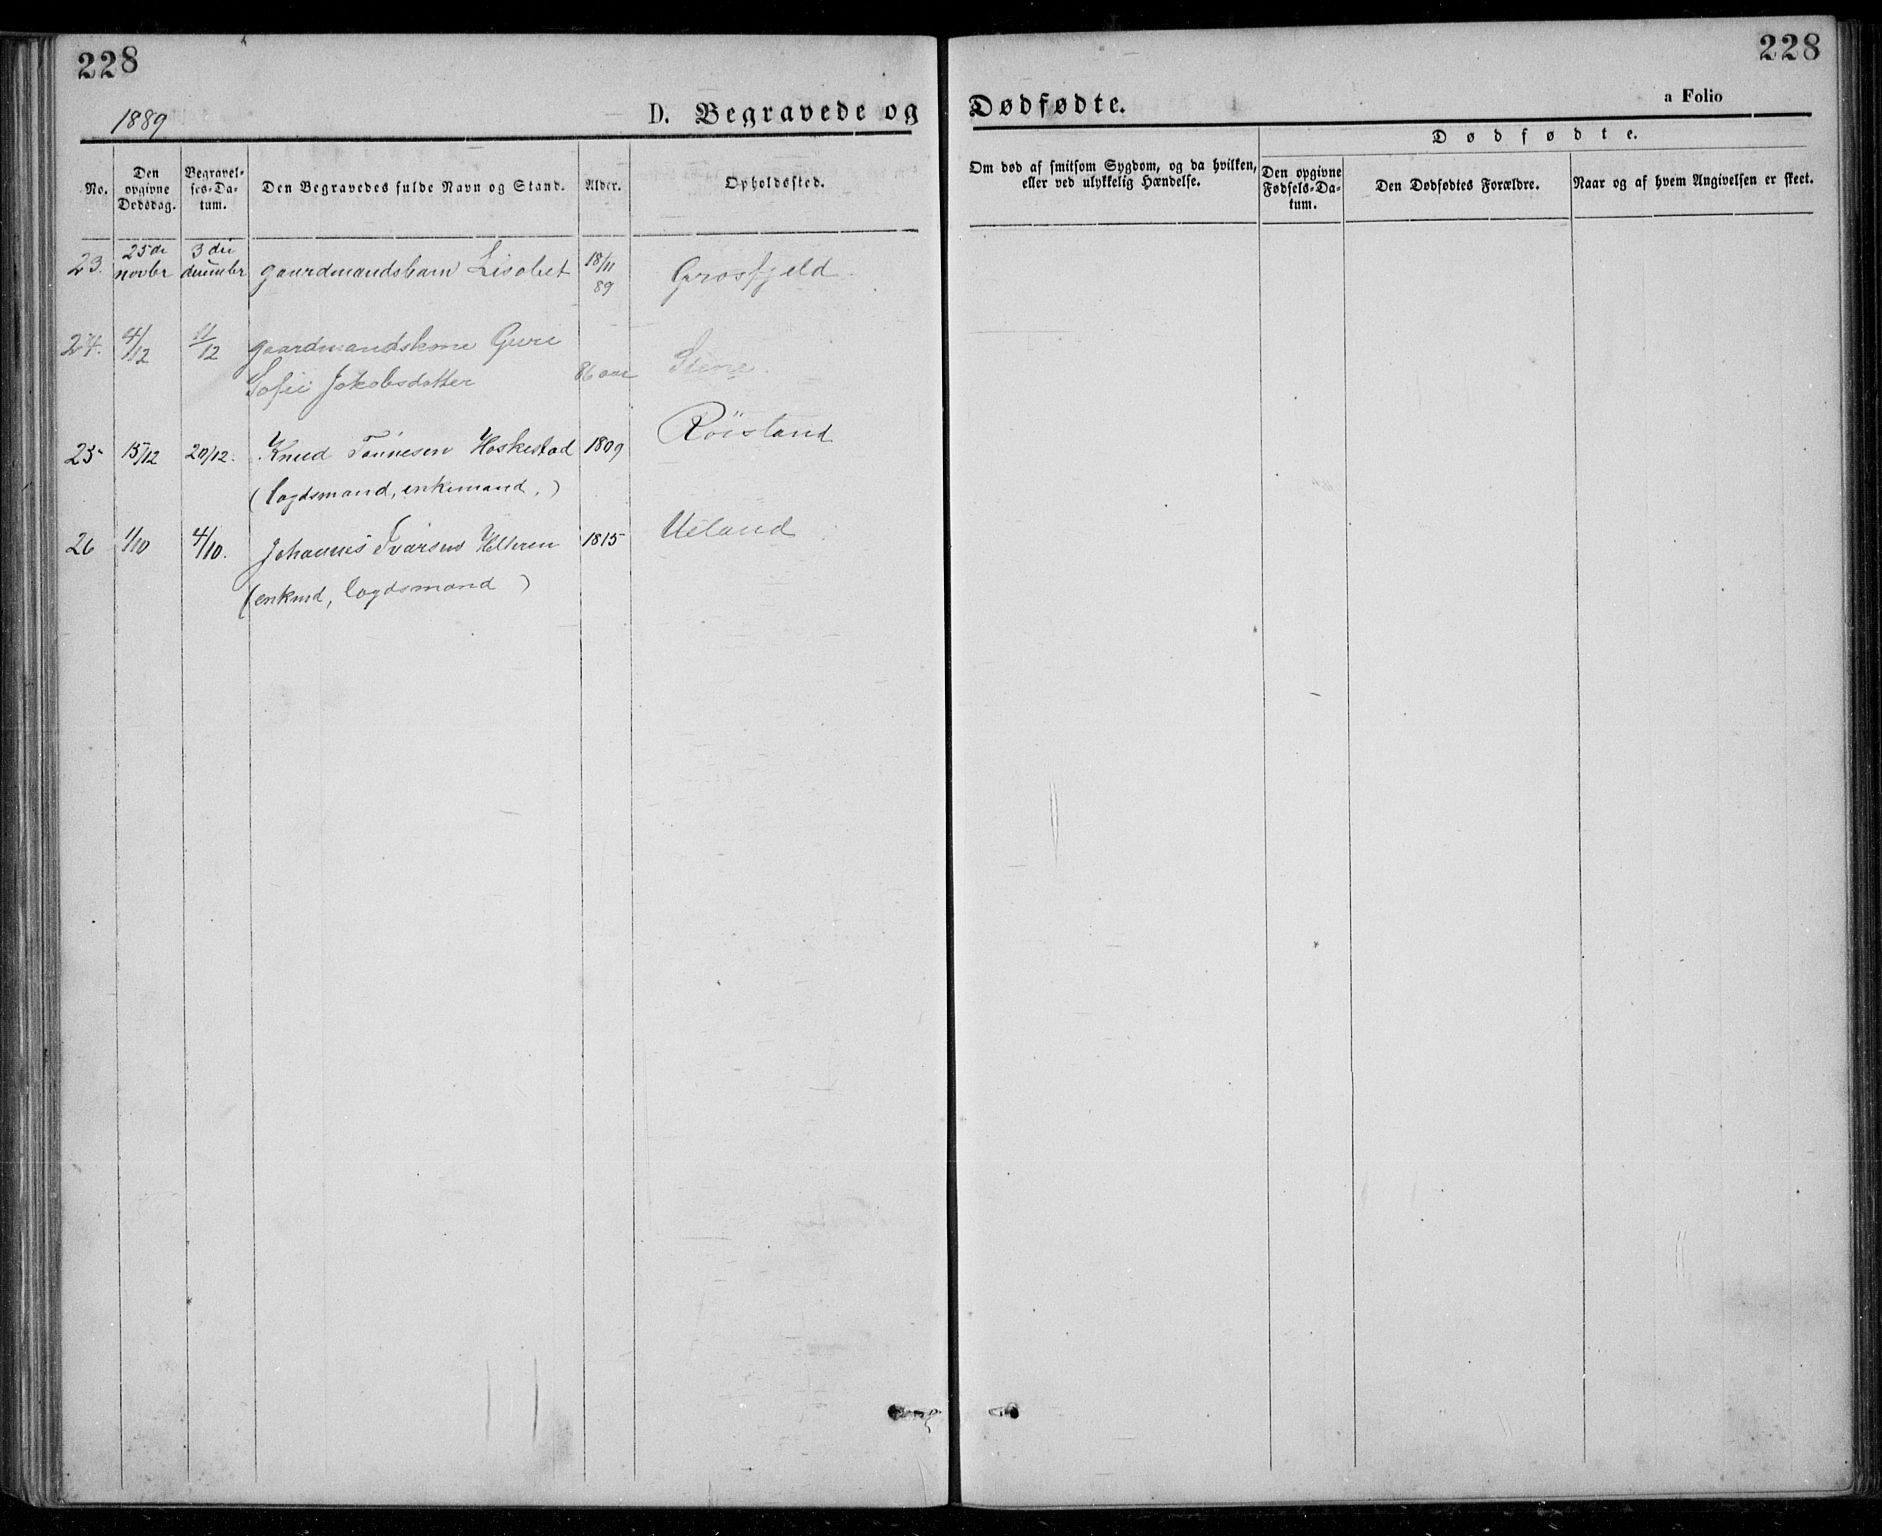 228
228
1889
D. Begravede og Dødfødte.
a Folio
No.
Den opgivne Dødsdag.
Begravelses-Datum.
Den Begravedes fulde Navn og Stand.
Alder.
Opholdssted.
Om død af smitsom Sygdom, og da hvilken, eller ved ulykkelig Hændelse.
Dødfødte.
Den opgivne Fødsels-Datum.
Den Dødfødtes Forældre.
Naar og af hvem Angivelsen er skeet.
23. 25de novbr 3die gaardmandsbarn Lisabet 18/11 89 Grosfjeld
24. 4/12 11/12 gaardmandskone Guri
Sofie Jakobsdatter 86 aar
25 15/12 20/12. Knud Tønnesen Haskestad 1809 Röisland
(Logdsmand, enkemand,)
26 1/10 4/10. Johannes Ivarsen Helleren 1815 Ueland
(enkmd, Logdsmand)